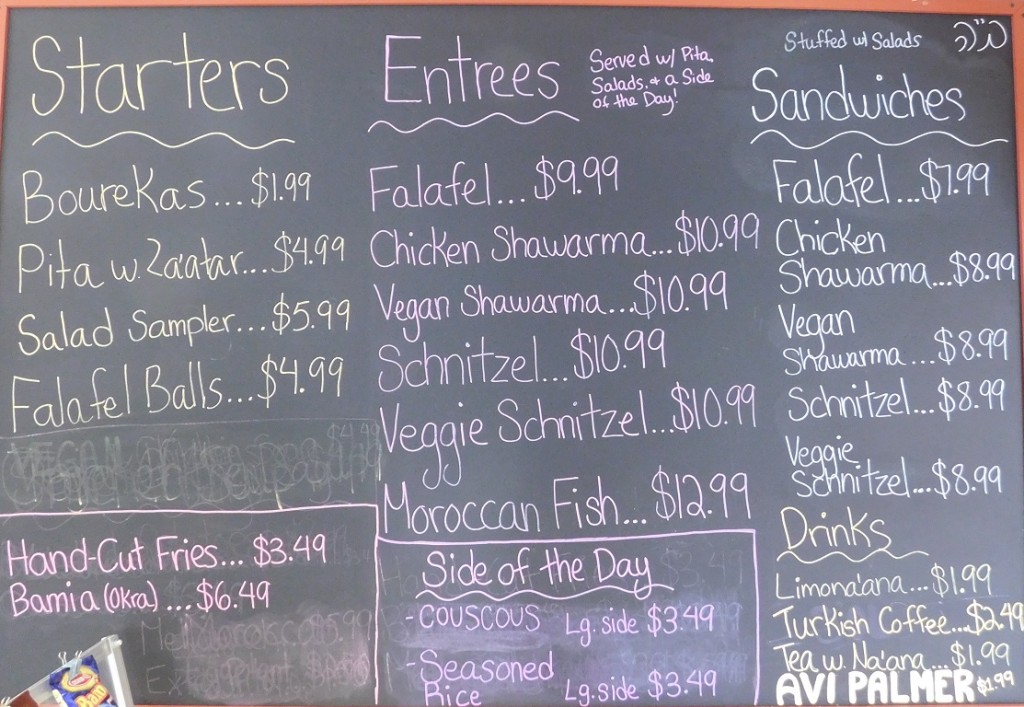 Starters
Bourekas...$1.99
Pita w. Za'atar...$4.99
Salad Sampler...$5.99
Falafel Balls...$4.99
Hand-Cut Fries...$3.49
Bamia (Okra)...$6.49
Entrees
Served w/ Pita,
Salads, & a Side
of the Day!
Falafel...$9.99
Chicken Shawarma...$10.99
Vegan Shawarma...$10.99
Schnitzel...$10.99
Veggie Schnitzel...$10.99
Moroccan Fish...$12.99
Side of the Day
-COUSCOUS Lg. side $3.49
-Seasoned
Rice Lg. side $3.49
Stuffed w/ Salads
Sandwiches
Falafel...$7.99
Chicken
Shawarma...$8.99
Vegan
Shawarma...$8.99
Schnitzel...$8.99
Veggie
Schnitzel...$8.99
Drinks
Limona'ana...$1.99
Turkish Coffee...$2.49
Tea w. Na'ana...$1.99
AVI PALMER $1.99